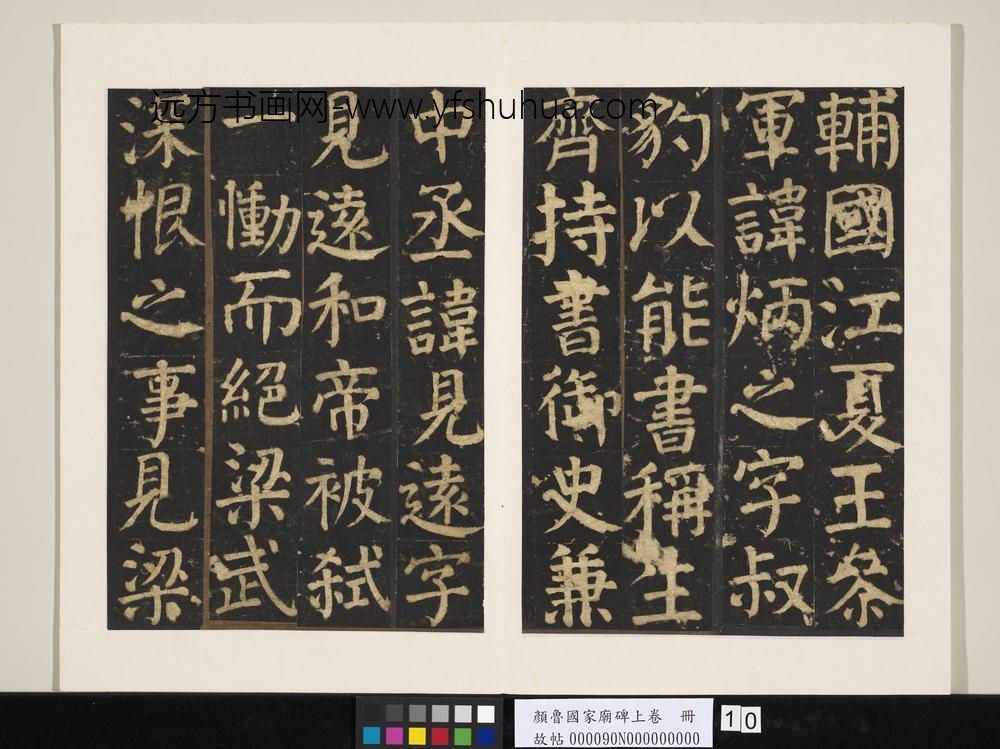 輔國江夏王叅
軍諱炳之字叔
豹以能書稱生
齊持書御史兼
中丞諱見遠字
見遠和帝被弑
一慟而絕梁武
深恨之事見梁
远方书画网-www.yfshuhua.com
顏魯國家廟碑上卷 冊
故帖 000090N000000000
10